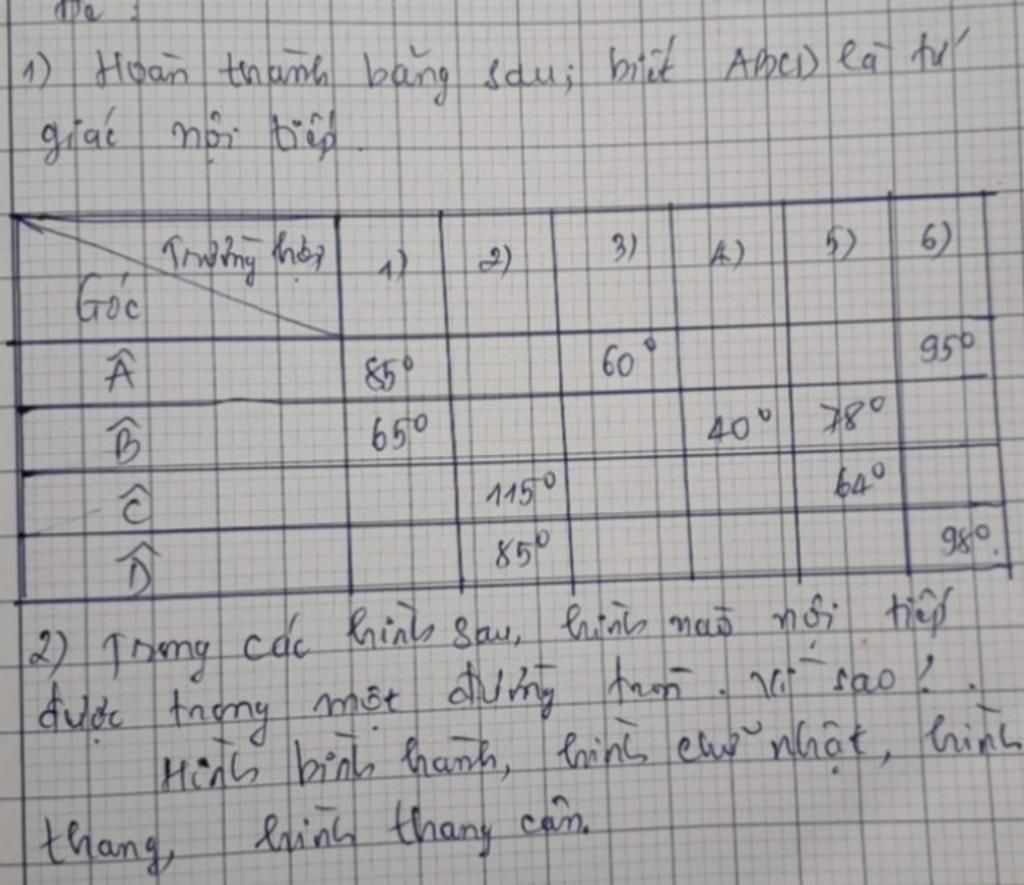 Đề :
1) Hoàn thành bảng sau; biết ABCD là tứ
giác nội tiếp.
Trường hợp 1) 2) 3) 4) 5) 6)
Góc
Â 85° 60° 95°
B̂ 65° 40° 78°
Ĉ 115° 64°
D̂ 85° 98°.
2) Trong các hình sau, hình nào nội tiếp
được trong một đường tròn. Vì sao? .
Hình bình hành, hình chữ nhật, hình
thang, hình thang cân.